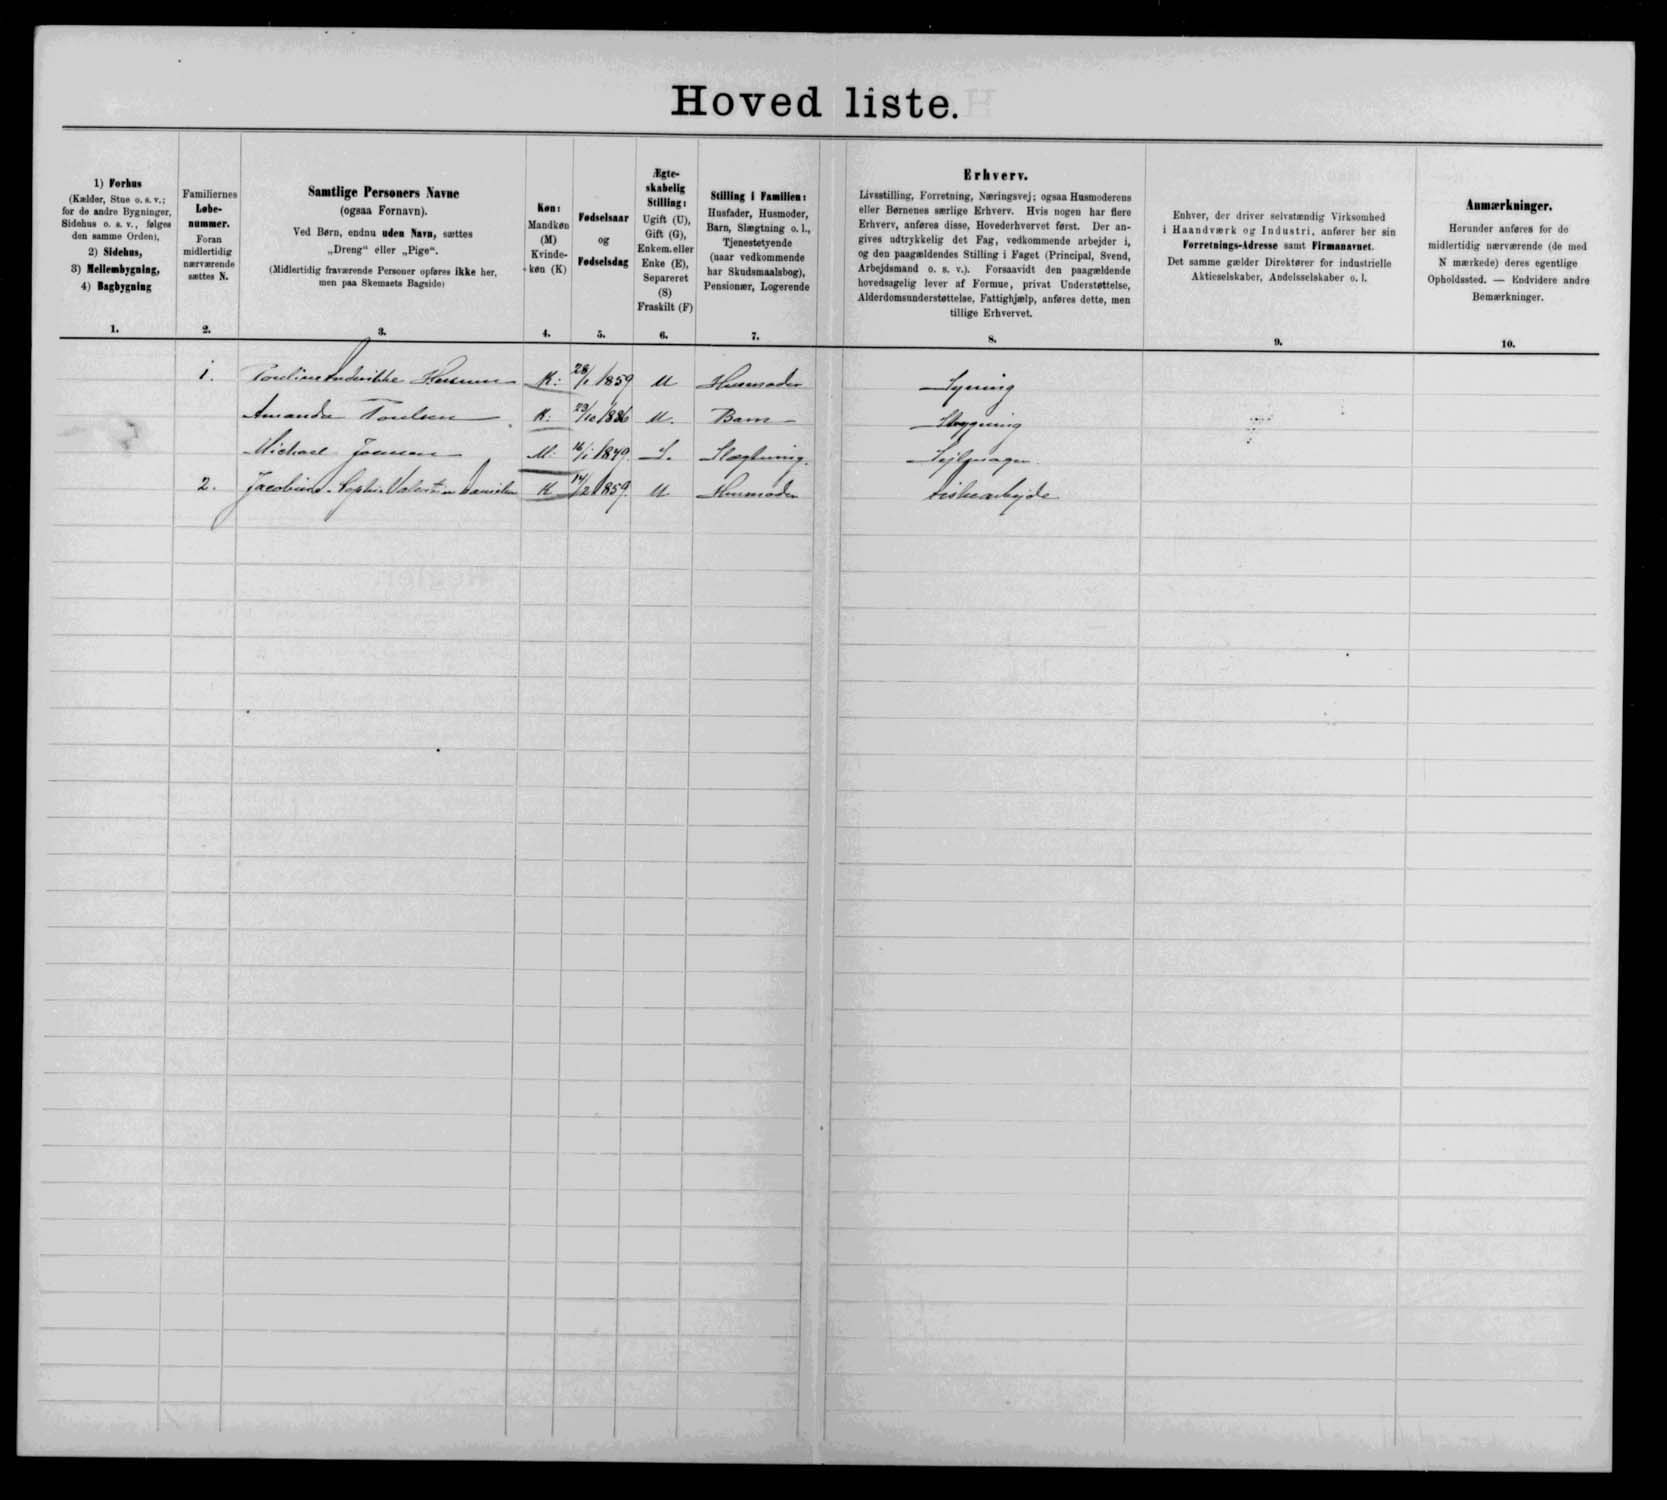 Hoved liste.
1) Forhus
(Kælder, Stue o. s. v.;
for de andre Bygninger,
Sidehus o. s. v., følges
den samme Orden),
2) Sidehus,
3) Mellembygning,
4) Bagbygning
1.
Familiernes
Løbe-
nummer.
Foran
midlertidig
nærværende
sættes N.
2.
Samtlige Personers Navne
(ogsaa Fornavn).
Ved Børn, endnu uden Navn, sættes
„Dreng“ eller „Pige“.
(Midlertidig fraværende Personer opføres ikke her,
men paa Skemaets Bagside)
3.
Køn:
Mandkøn
(M)
Kvinde-
køn (K)
4.
Fødselsaar
og
Fødselsdag
5.
Ægte-
skabelig
Stilling:
Ugift (U),
Gift (G),
Enkem. eller
Enke (E),
Separeret
(S)
Fraskilt (F)
6.
Stilling i Familien:
Husfader, Husmoder,
Barn, Slægtning o. l.,
Tjenestetyende
(naar vedkommende
har Skudsmaalsbog),
Pensionær, Logerende
7.
Erhverv.
Livsstilling, Forretning, Næringsvej; ogsaa Husmoderens
eller Børnenes særlige Erhverv. Hvis nogen har flere
Erhverv, anføres disse, Hovederhvervet først. Der an-
gives udtrykkelig det Fag, vedkommende arbejder i,
og den paagældendes Stilling i Faget (Principal, Svend,
Arbejdsmand o. s. v.). Forsaavidt den paagældende
hovedsagelig lever af Formue, privat Understøttelse,
Alderdomsunderstøttelse, Fattighjælp, anføres dette, men
tillige Erhvervet.
8.
Enhver, der driver selvstændig Virksomhed
i Haandværk og Industri, anfører her sin
Forretnings-Adresse samt Firmanavnet.
Det samme gælder Direktører for industrielle
Aktieselskaber, Andelsselskaber o. l.
9.
Anmærkninger.
Herunder anføres for de
midlertidig nærværende (de med
N mærkede) deres egentlige
Opholdssted. — Endvidere andre
Bemærkninger.
10.
1. Pouline K: 28/1 1859 U Husmoder Syning
Amanda Poulsen K: 29/10 1886 U. Barn Strygning
Michael M: 16/1 1849 S. Slægtning. Sejlmager
2. Jacobine Sophie K 14/2 1859 U. Husmoder Fiskearbejde